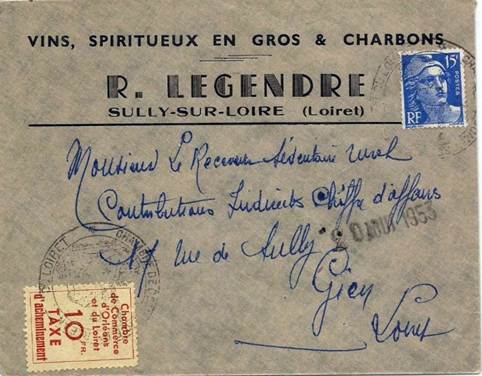 VINS, SPIRITUEUX EN GROS & CHARBONS
R. LEGENDRE
SULLY-SUR-LOIRE (Loiret)
15F
POSTES
RF
Monsieur Le Receveur Sédentaire rural
Contributions Indirects Chiffre d'affaires
rue de Sully
Gien
Loiret
AOUT 1953
LOIRET
CHAMBRE DE
Chambre
de Commerce
d'Orléans
et du Loiret
10 FR.
TAXE
d'acheminement